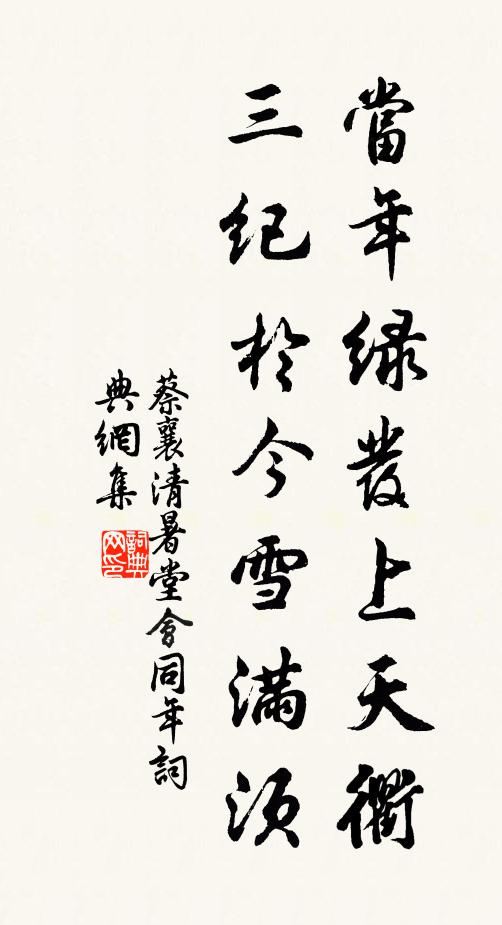 當年綠發上天衢
三紀於今雪滿須
蔡襄清暑堂會同年詞
典網集
詞典网印